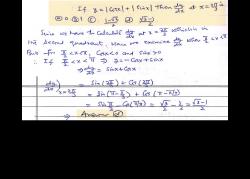 If y = |cosx| + |sinx| then dy/dx at x = 2π/3 is
Ⓐ 0 Ⓑ 1 Ⓒ (1-√3)/2 Ⓓ (√3-1)/2
Since we have to calculate dy/dx at x = 2π/3 which is in
the second quadrant, Hence we examine dy/dx when π/2 < x < π
But for π/2 < x < π, cosx < 0 and sinx > 0
∴ If π/2 < x < π ⇒ y = -cosx + sinx
⇒ dy/dx = sinx + cosx
dy/dx)x=2π/3 = sin(2π/3) + cos(2π/3)
= sin(π-π/3) + cos(π-π/3)
= sin π/3 - cos(π/3) = √3/2 - 1/2 = (√3-1)/2
⇒ Answer Ⓓ